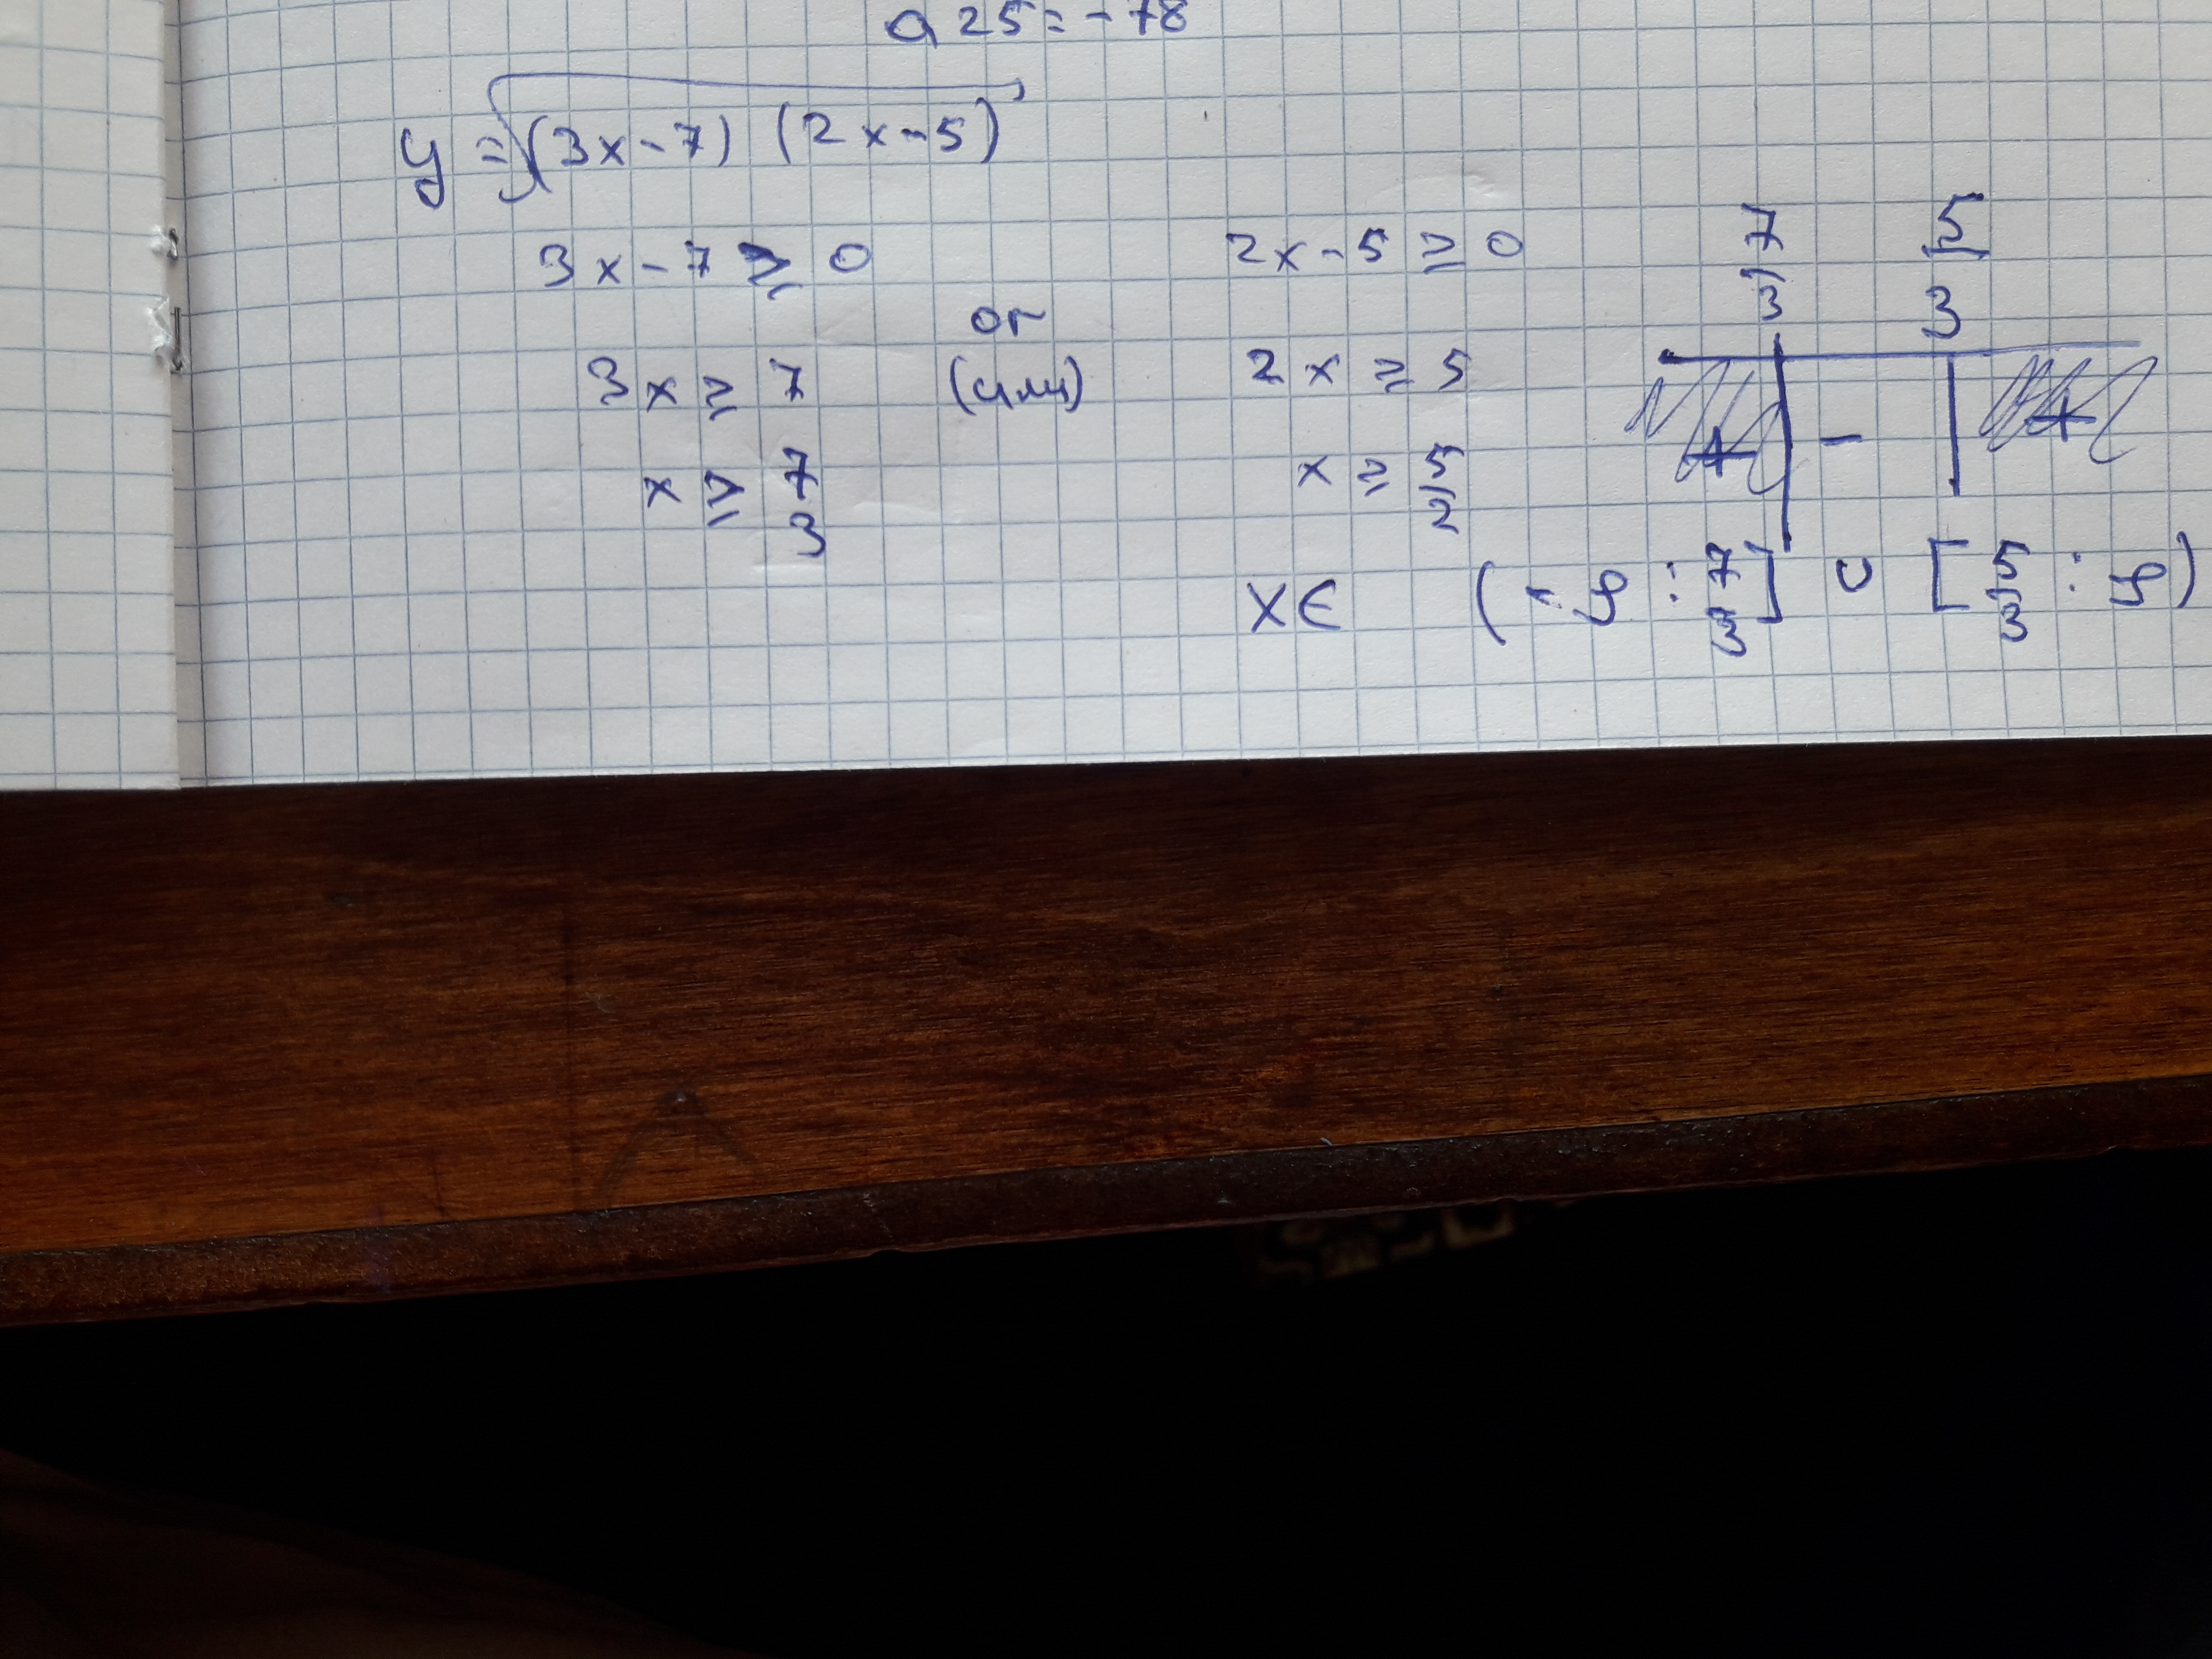 a25 = -78
y = √(3x-7) (2x-5)
3x-7 ≥ 0
or
3x ≥ 7 (или)
x ≥ 7/3
2x-5 ≥ 0
2x ≥ 5
x ≥ 5/2
7/3 5/3
+ - +
x∈ (-∞ : 7/3] ∪ [5/3 : ∞)